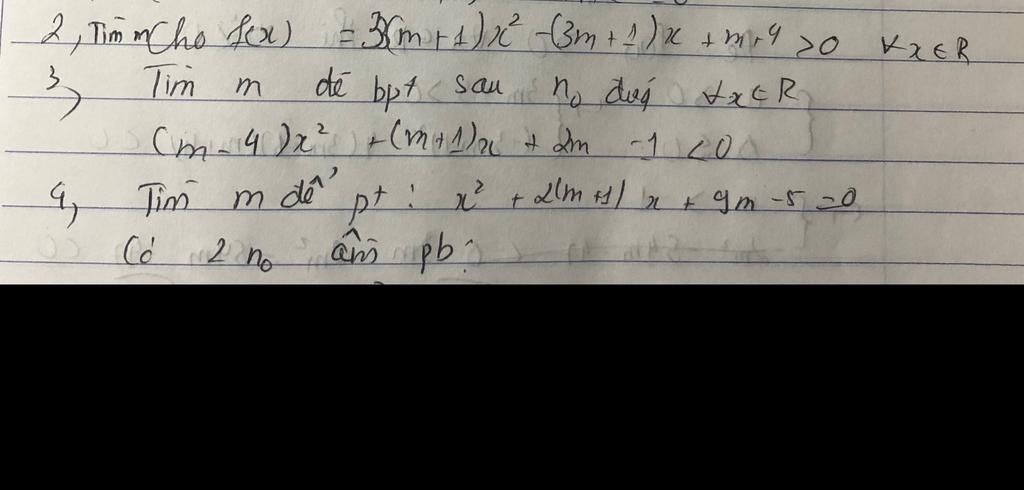 2, Tìm m Cho f(x) = 3(m+1)x² -(3m+1)x + m+4 >0 ∀x∈R
3, Tìm m để bpt sau n₀ đúg ∀x∈R
(m-4)x² +(m+1)x + 2m -1 <0
4, Tìm m để pt : x² + 2(m+1) x + 9m -5 =0
Có 2 n₀ âm pb: